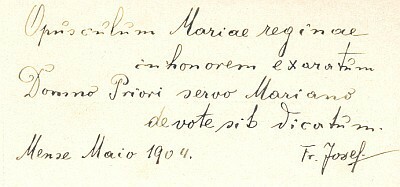 Opusculum Mariae reginae
in honorem exaratum
Domno Priori servo Mariano
devote sit dicatum.
Mense Maio 1904. Fr. Josef